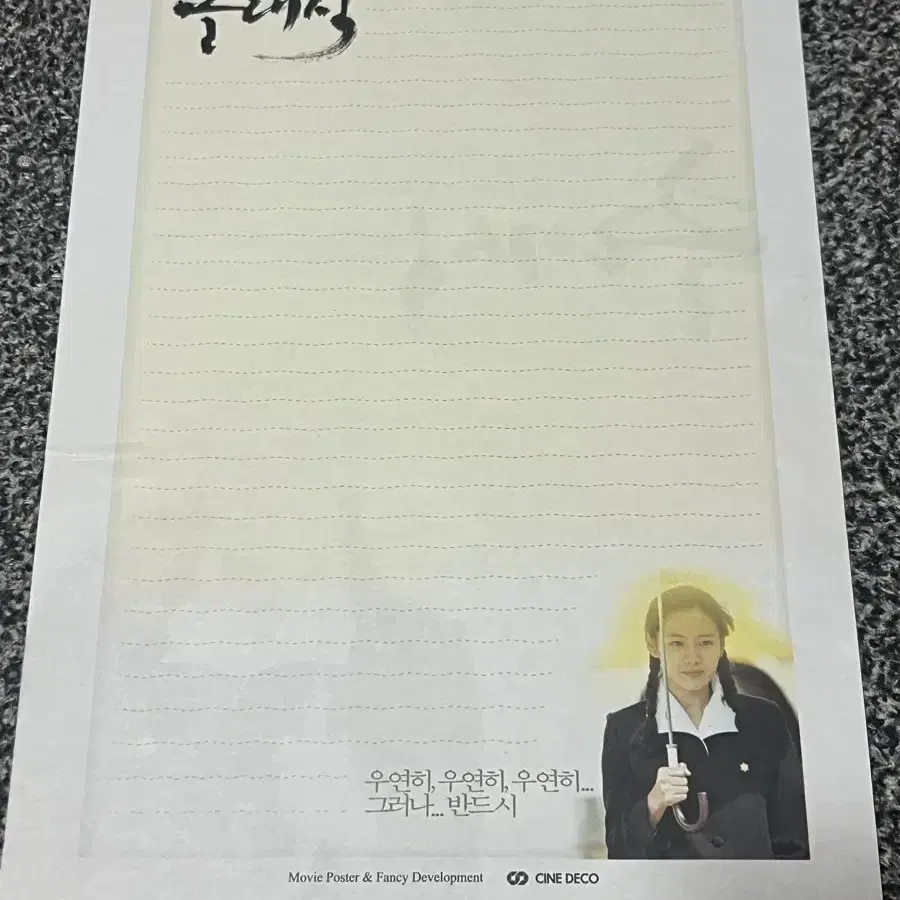 클래식
우연히, 우연히, 우연히...
그러나... 반드시
Movie Poster & Fancy Development CINE DECO